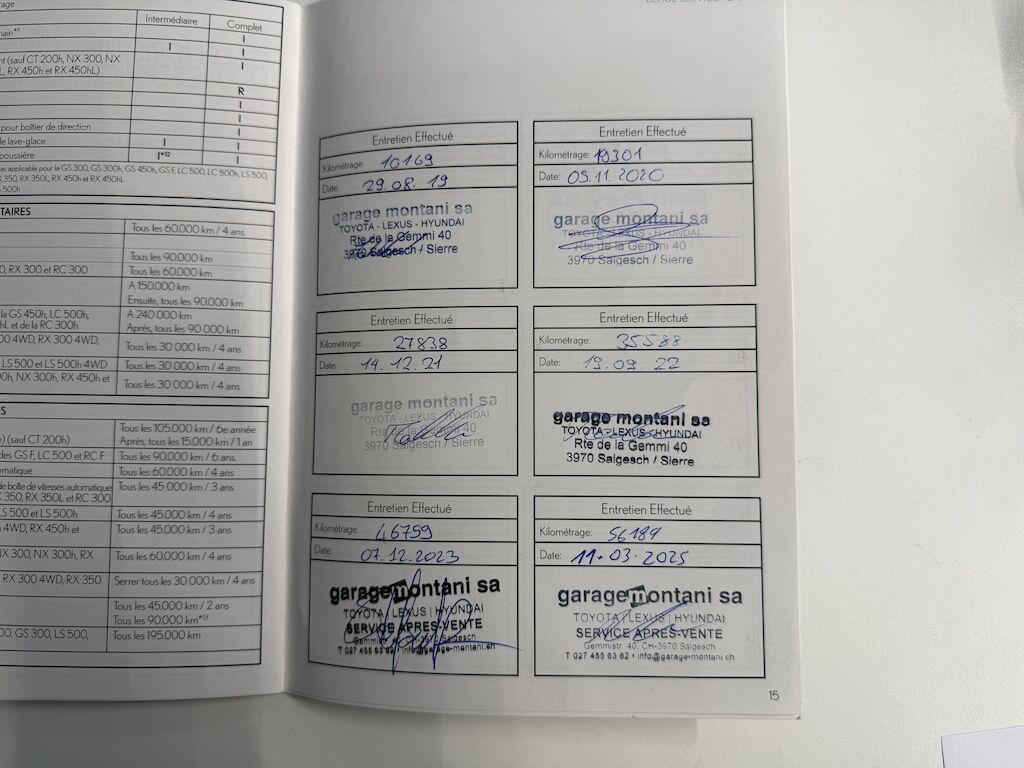 Intermédiaire
Complet
I
I
nt (sauf CT 200h, NX 300, NX
L, RX 450h et RX 450hL)
I
R
I
I
pour boîtier de direction
I
de lave-glace
I
I
poussière
I*12
I
as applicable pour la GS 300, GS 300h, GS 450h, GS F, LC 500, LC 500h, LS 500,
X 350, RX 350L, RX 450h et RX 450hL
500h
TAIRES
Tous les 60.000 km / 4 ans
Tous les 90.000 km
0, RX 300 et RC 300
Tous les 60.000 km
A 150.000 km
Ensuite, tous les 90.000 km
la GS 450h, LC 500h,
A 240 000 km
hL et de la RC 300h
Après, tous les 90 000 km
00 4WD, RX 300 4WD,
Tous les 30 000 km / 4 ans
LS 500 et LS 500h 4WD
Tous les 30 000 km / 4 ans
00h, NX 300h, RX 450h et
Tous les 30 000 km / 4 ans
ES
Tous les 105.000 km / 6e année
e) (sauf CT 200h)
Après, tous les 15.000 km / 1 an
des GS F, LC 500 et RC F
Tous les 90.000 km / 6 ans.
omatique
Tous les 60.000 km / 4 ans
de boîte de vitesses automatique
X 350, RX 350L et RC 300
Tous les 45 000 km / 3 ans
LS 500 et LS 500h
Tous les 45.000 km / 4 ans
4WD, RX 450h et
Tous les 45.000 km / 3 ans
NX 300, NX 300h, RX
Tous les 60.000 km / 4 ans
RX 300 4WD, RX 350
Serrer tous les 30 000 km / 4 ans
Tous les 45.000 km / 2 ans
Tous les 90.000 km*13
00, GS 300, LS 500,
Tous les 195.000 km
Entretien Effectué
Kilométrage: 10169
Date: 29.08.19
garage montani sa
TOYOTA - LEXUS - HYUNDAI
Rte de la Gemmi 40
3970 Salgesch / Sierre
Entretien Effectué
Kilométrage: 19301
Date: 05.11.2020
garage montani sa
TOYOTA - LEXUS - HYUNDAI
Rte de la Gemmi 40
3970 Salgesch / Sierre
Entretien Effectué
Kilométrage: 27838
Date: 14.12.21
garage montani sa
TOYOTA - LEXUS - HYUNDAI
Rte de la Gemmi 40
3970 Salgesch / Sierre
Entretien Effectué
Kilométrage: 35588
Date: 19.09.22
garage montani sa
TOYOTA - LEXUS - HYUNDAI
Rte de la Gemmi 40
3970 Salgesch / Sierre
Entretien Effectué
Kilométrage: 46759
Date: 07.12.2023
garagemontani sa
TOYOTA | LEXUS | HYUNDAI
SERVICE APRES-VENTE
Gemmistr. 40, CH-3970 Salgesch
T 027 455 63 62 • info@garage-montani.ch
Entretien Effectué
Kilométrage: 56189
Date: 11.03.2025
garagemontani sa
TOYOTA | LEXUS | HYUNDAI
SERVICE APRES-VENTE
Gemmistr. 40, CH-3970 Salgesch
T 027 455 63 62 • info@garage-montani.ch
15